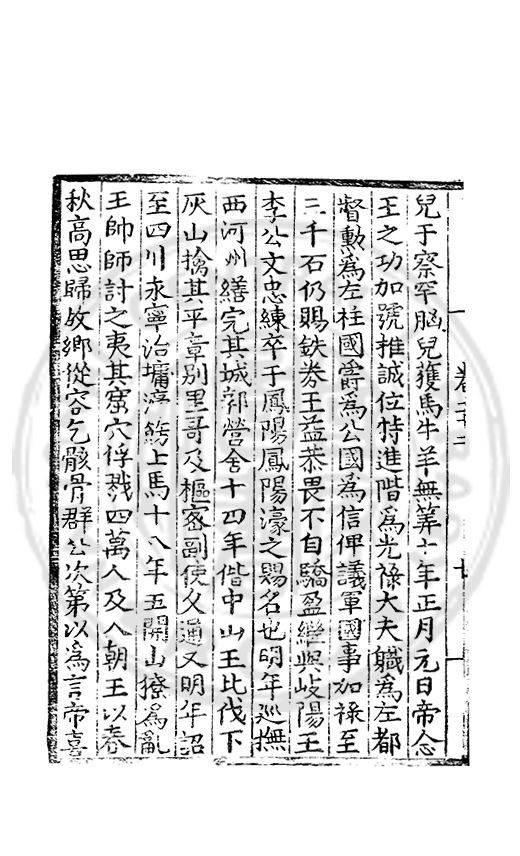 兒于察罕腦兒獲馬牛羊無筭十年正月元日帝念
王之功加號推誠位特進階為光祿大夫軄為左都
督勲為左柱國爵為公國為信俾議軍國事加祿至
三千石仍賜鉄券王益恭畏不自驕盈繼與岐陽王
李公文忠練卒于鳳陽鳳陽濠之賜名也明年廵撫
西河州繕完其城郭營舍十四年偕中山王北伐下
灰山擒其平章别里哥及樞密副使乂通又明年詔
至四川永寧治墉濬
上馬十八年五開山獠為亂
王帥師討之夷其窟穴俘戮四萬人及入朝王以春
秋高思歸故鄉從容乞骸骨群公次第以為言帝喜